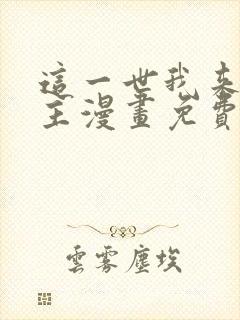 這一世我來
主漫畫免費
雲霧塵埃